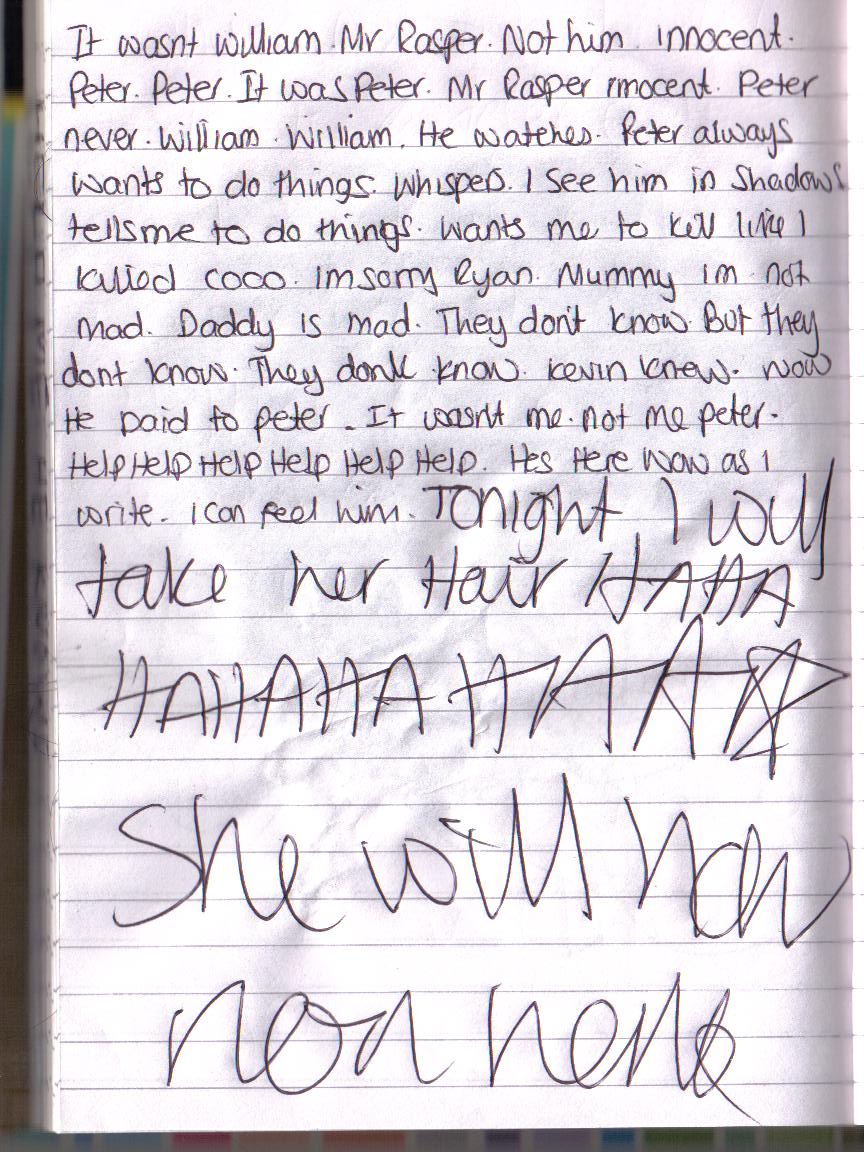 It wasnt william. Mr Rasper. Not him. innocent.
Peter. Peter. It was Peter. Mr Rasper innocent. Peter
never. William. William. He watches. Peter always
wants to do things. Whispers. I see him in Shadows
tells me to do things. Wants me to kill like I
killed coco. im sorry Ryan. Mummy im not
mad. Daddy is mad. They don't know. But they
dont know. They dont know. Kevin knew. now
He paid to peter. It wasnt me. not me peter.
Help Help Help Help Help Help. Hes Here now as I
write. i can feel him. Tonight, I will
take her Hair HAHA
HAHAHAHAAA
She will